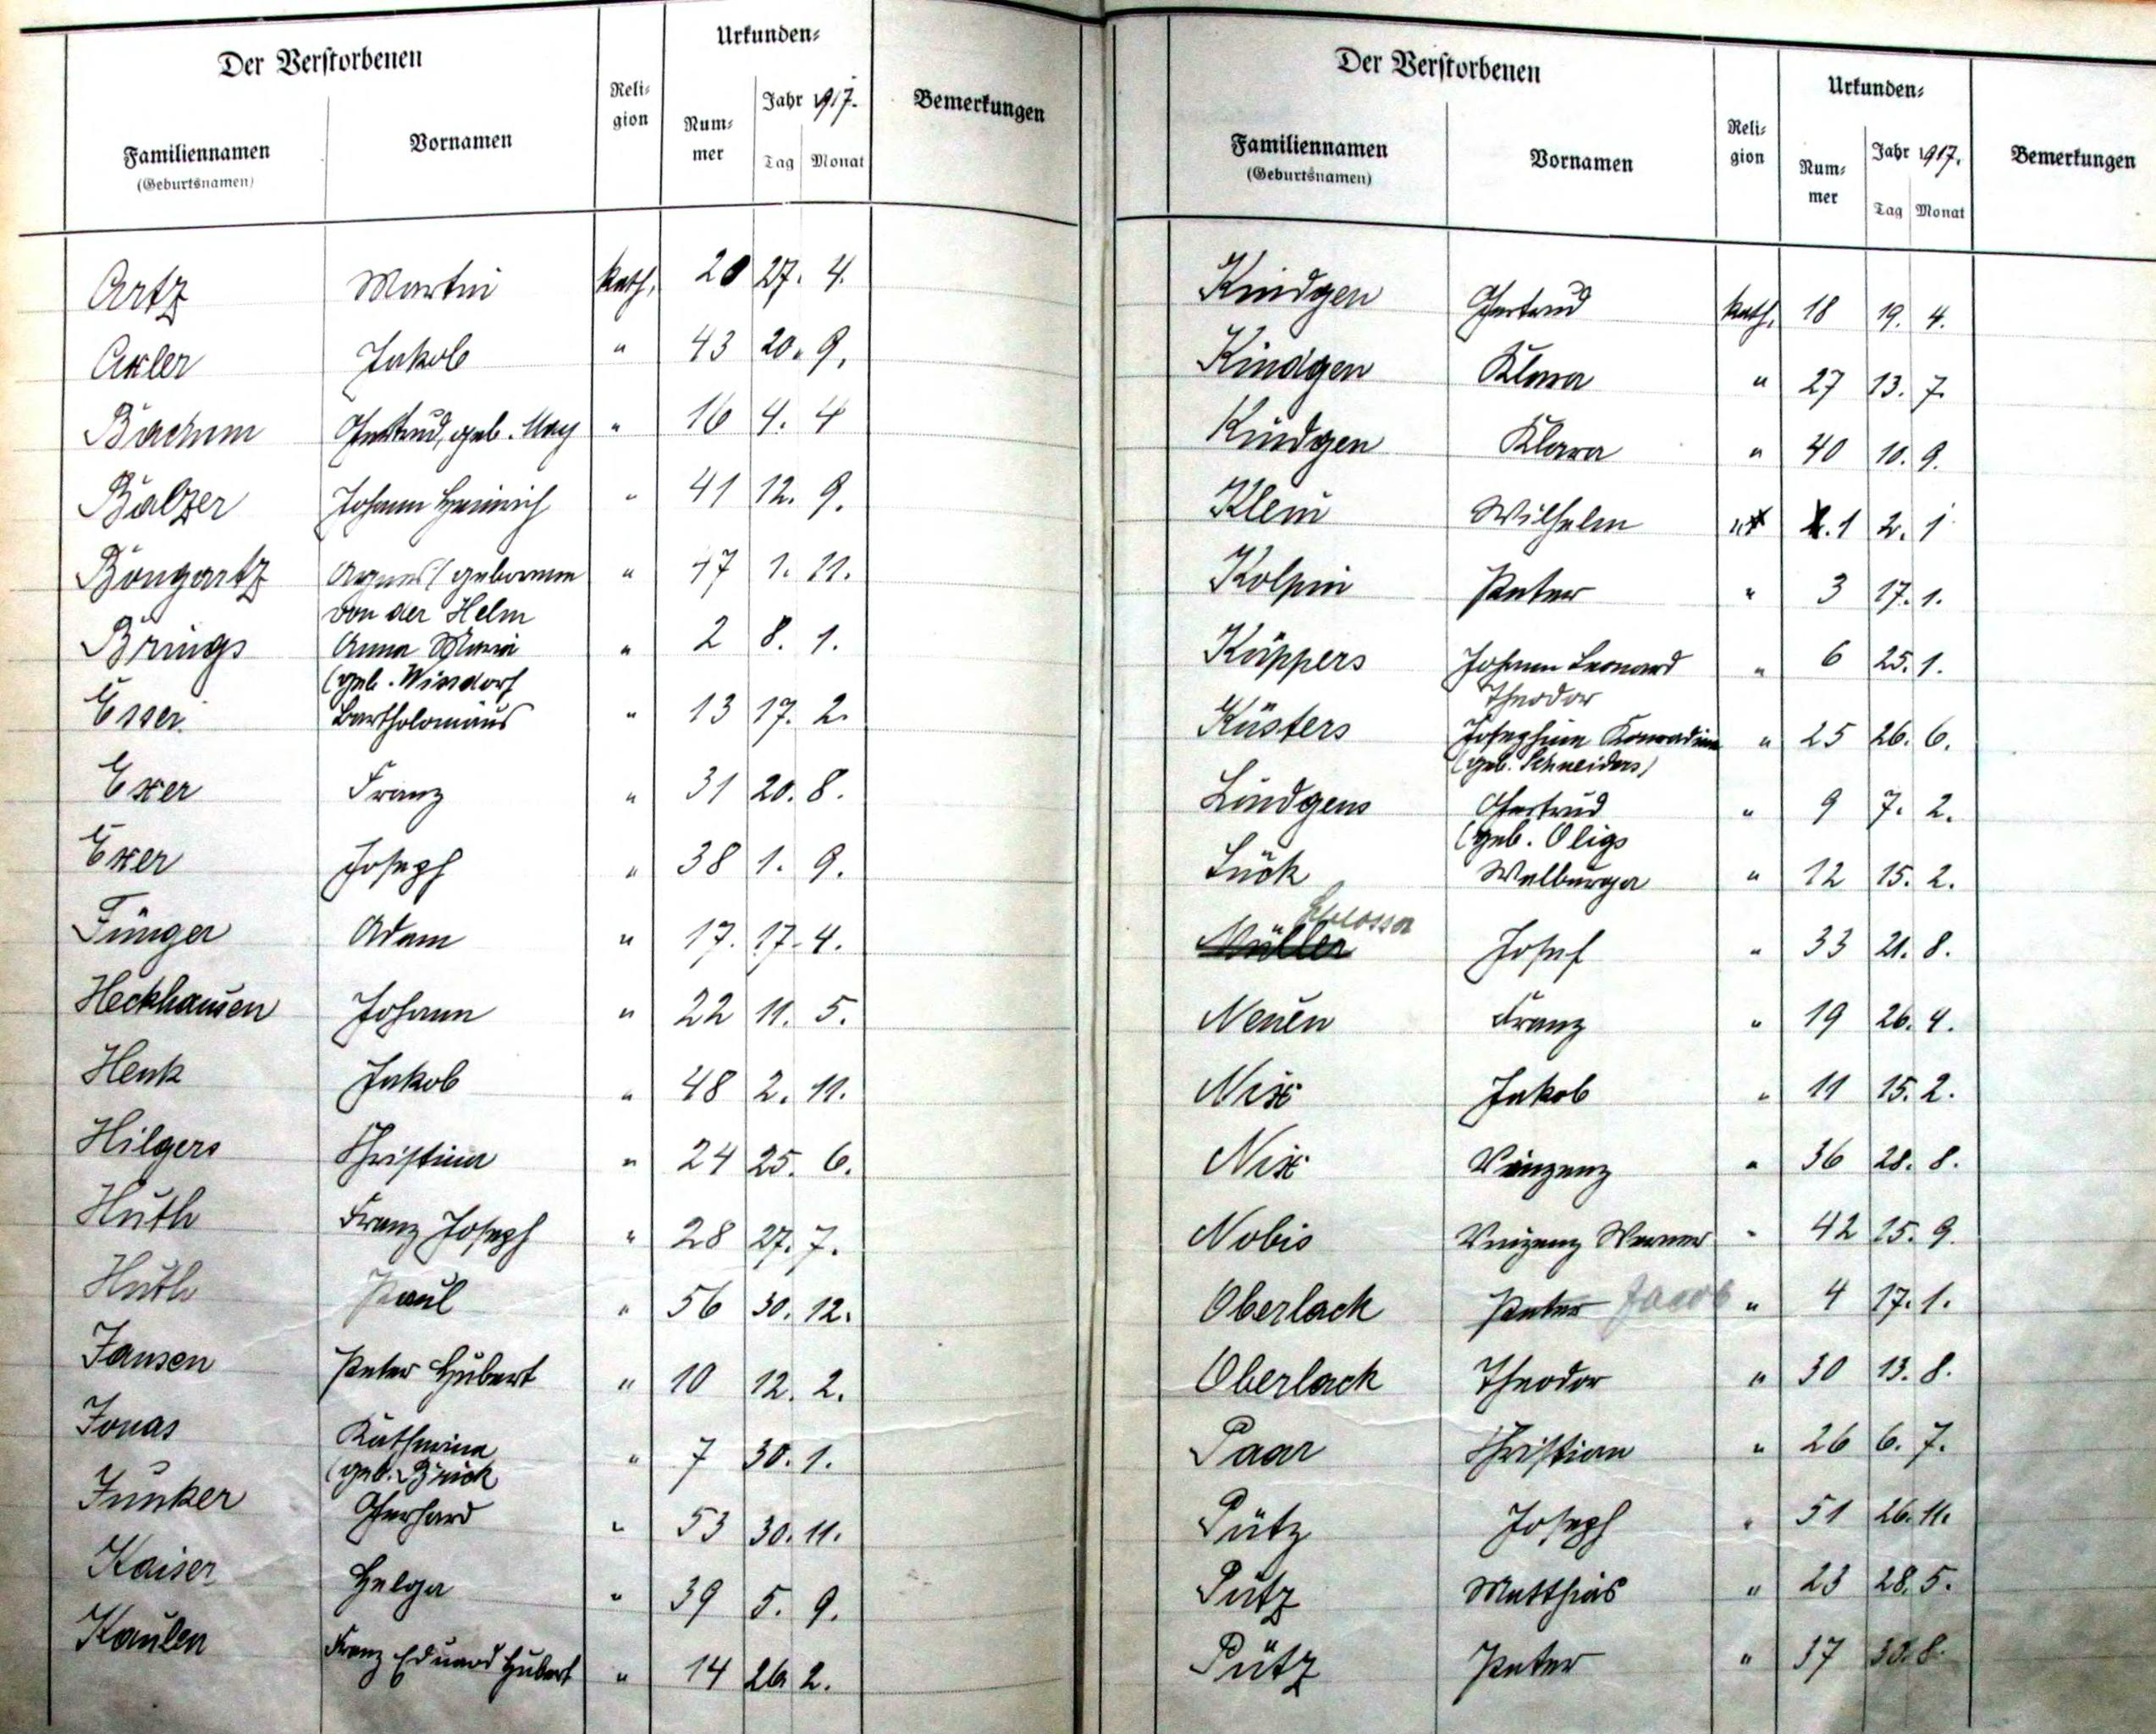 Der Verstorbenen
Urkunden=
Reli=
gion
Jahr 1917.
Bemerkungen
Familiennamen
(Geburtsnamen)
Vornamen
Num=
mer
Tag Monat
Artz Martin kath. 20 27. 4.
Axler Jakob " 43 20. 9.
Bachem Gertrud, geb. May " 16 4. 4
Balzer Johann Heinrich " 41 12. 9.
Bongartz Agnes ( geborene " 47 1. 11.
von der Helm
Brings Anna Maria " 2 8. 1.
(geb. Windorf
Esser Bartholomäus " 13 17. 2.
Exer Franz " 31 20. 8.
Exer Joseph " 38 1. 9.
Fünger Adam " 17. 17. 4.
Heckhausen Johann " 22 11. 5.
Henk Jakob " 48 2. 11.
Hilgers Christina " 24 25. 6.
Huth Franz Joseph " 28 27. 7.
Huth Paul " 56 30. 12.
Jansen Peter Hubert " 10 12. 2.
Jonas Katharina " 7 30. 1.
(geb. Brück
Junker Gerhard " 53 30. 11.
Kaiser Helga " 39 5. 9.
Kaulen Franz Eduard Hubert " 14 26 2.
Der Verstorbenen
Urkunden=
Reli=
gion
Jahr 1917.
Bemerkungen
Familiennamen
(Geburtsnamen)
Vornamen
Num=
mer
Tag Monat
Kindgen Gertrud kath. 18 19. 4.
Kindgen Klara " 27 13. 7.
Kindgen Klara " 40 10. 9.
Klein Wilhelm " 1 2. 1
Kolpin Peter " 3 17. 1.
Küppers Johann Leonard " 6 25. 1.
Theodor
Küsters Josephine Konradine " 25 26. 6.
(geb. Schneiders)
Lindgens Gertrud " 9 7. 2.
(geb. Oligs
Lück Walburga " 12 15. 2.
Schlosser
Müller Josef " 33 21. 8.
Neuen Franz " 19 26. 4.
Nix Jakob " 11 15. 2.
Nix Vinzenz " 36 28. 8.
Nobis Vinzenz Werner " 42 15. 9.
Oberlack Peter Jacob " 4 17. 1.
Oberlack Theodor " 30 13. 8.
Paar Christian " 26 6. 7.
Pütz Joseph " 51 26. 11.
Pütz Matthias " 23 28. 5.
Pütz Peter " 37 30. 8.